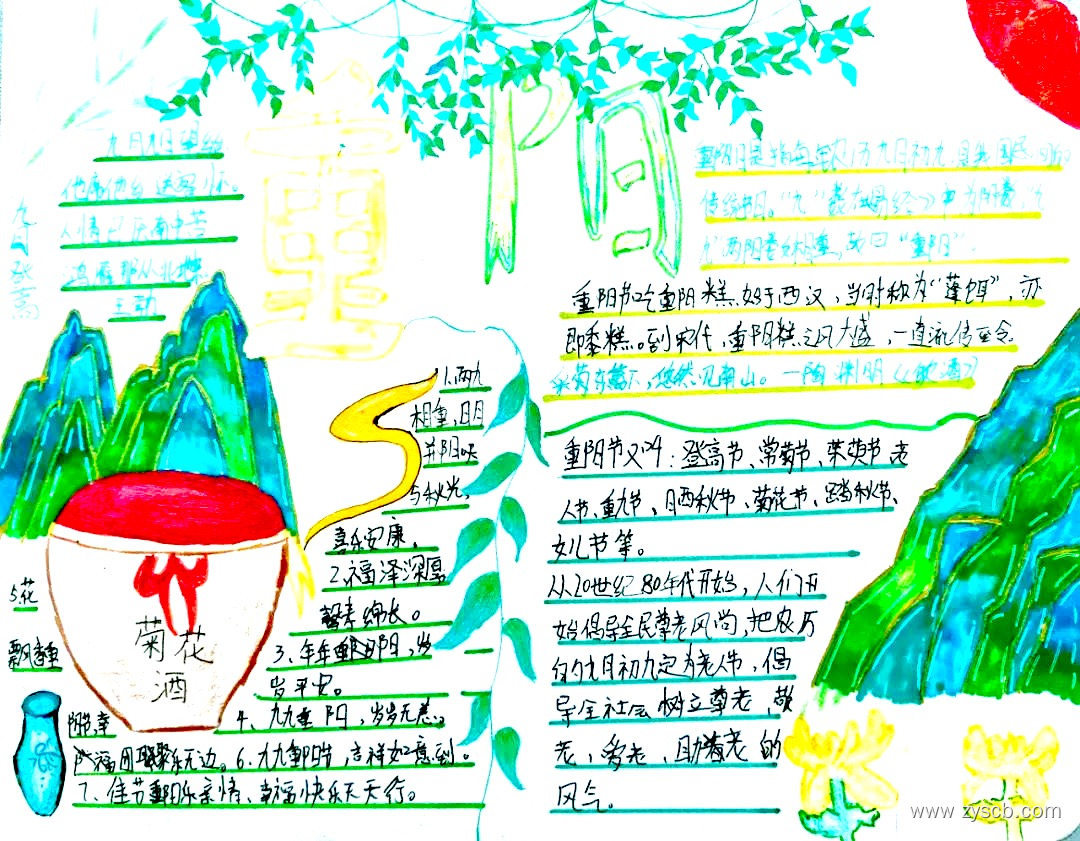 重阳
九月九日望
人情已厌南中苦
鸿雁那从北
王勃
九月登高
传统节日。“九”数在易经》中为阳数，“九
九”两阳数相重，故曰“重阳”。
重阳节吃重阳糕始于西汉，当时称为“蓬饵”，亦
即黍糕。到宋代，重阳糕之风大盛，一直流传至今
采菊东篱下，悠然见南山。一陶渊明《饮酒》
重阳节又叫：登高节、常菊节、茱萸节老
人节、重九节、晒秋节、菊花节、踏秋节、
女儿节等。
从20世纪80年代开始，人们开
始倡导全民尊老风尚，把农历
的九月初九定为老人节，倡
导全社会树立尊老、敬
老、爱老、助老的
风气。
1.两九
相重，日月
并阳
与秋光，
喜乐安康。
2.福泽深厚
馨孝绵长。
3、年年重阳，岁
岁平安。
4、九九重阳，岁岁无恙。
5.花
飘
幸福团聚乐无边。6.九九重阳节，吉祥如意到。
7、佳节重阳乐亲情、幸福快乐天天行。
菊花
酒
www.zyscb.com